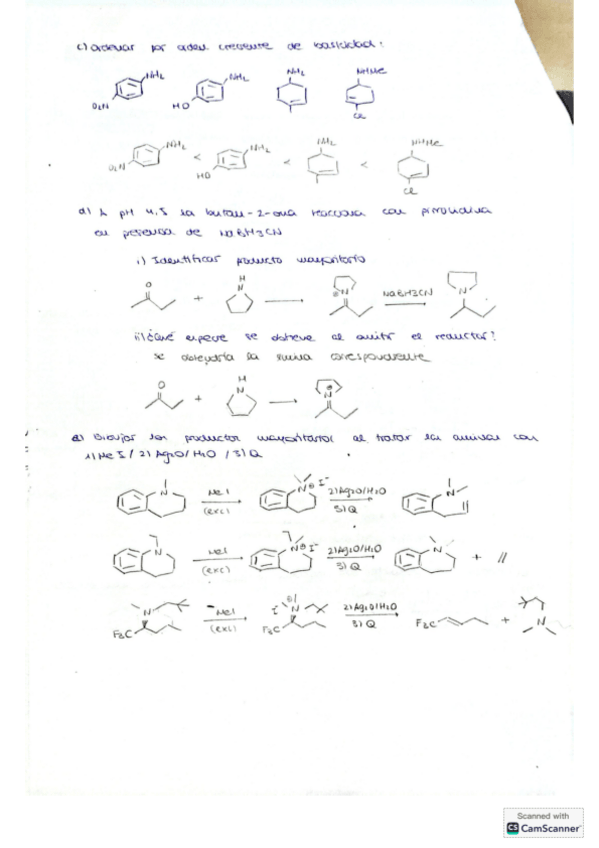 c) Ordenar por orden creciente de basicidad:
NH₂ NH₂ NH₂ NHMe
O₂N HO Cl
NH₂ < NH₂ < NH₂ < NHMe
O₂N HO Cl
d) A pH 4,5 la butan-2-ona reacciona con pirrolidina
en presencia de NaBH3CN
i) Identificar producto mayoritario
O + H N → N ⊕ NaBH3CN → N
ii) ¿Qué especie se obtiene al omitir el reductor?
se obtendría la imina correspondiente
O + H N → N ⊕
e) Dibujar los productos mayoritarios al tratar las aminas con
1) MeI / 2) Ag₂O/H₂O / 3) Q
N MeI (exc) N ⊕ I⁻ 2) Ag₂O/H₂O 3) Q N
N MeI (exc) N ⊕ I⁻ 2) Ag₂O/H₂O 3) Q N + //
N F₃C MeI (exc) I N F₃C 2) Ag₂O/H₂O 3) Q F₃C + N
Scanned with
CS CamScanner